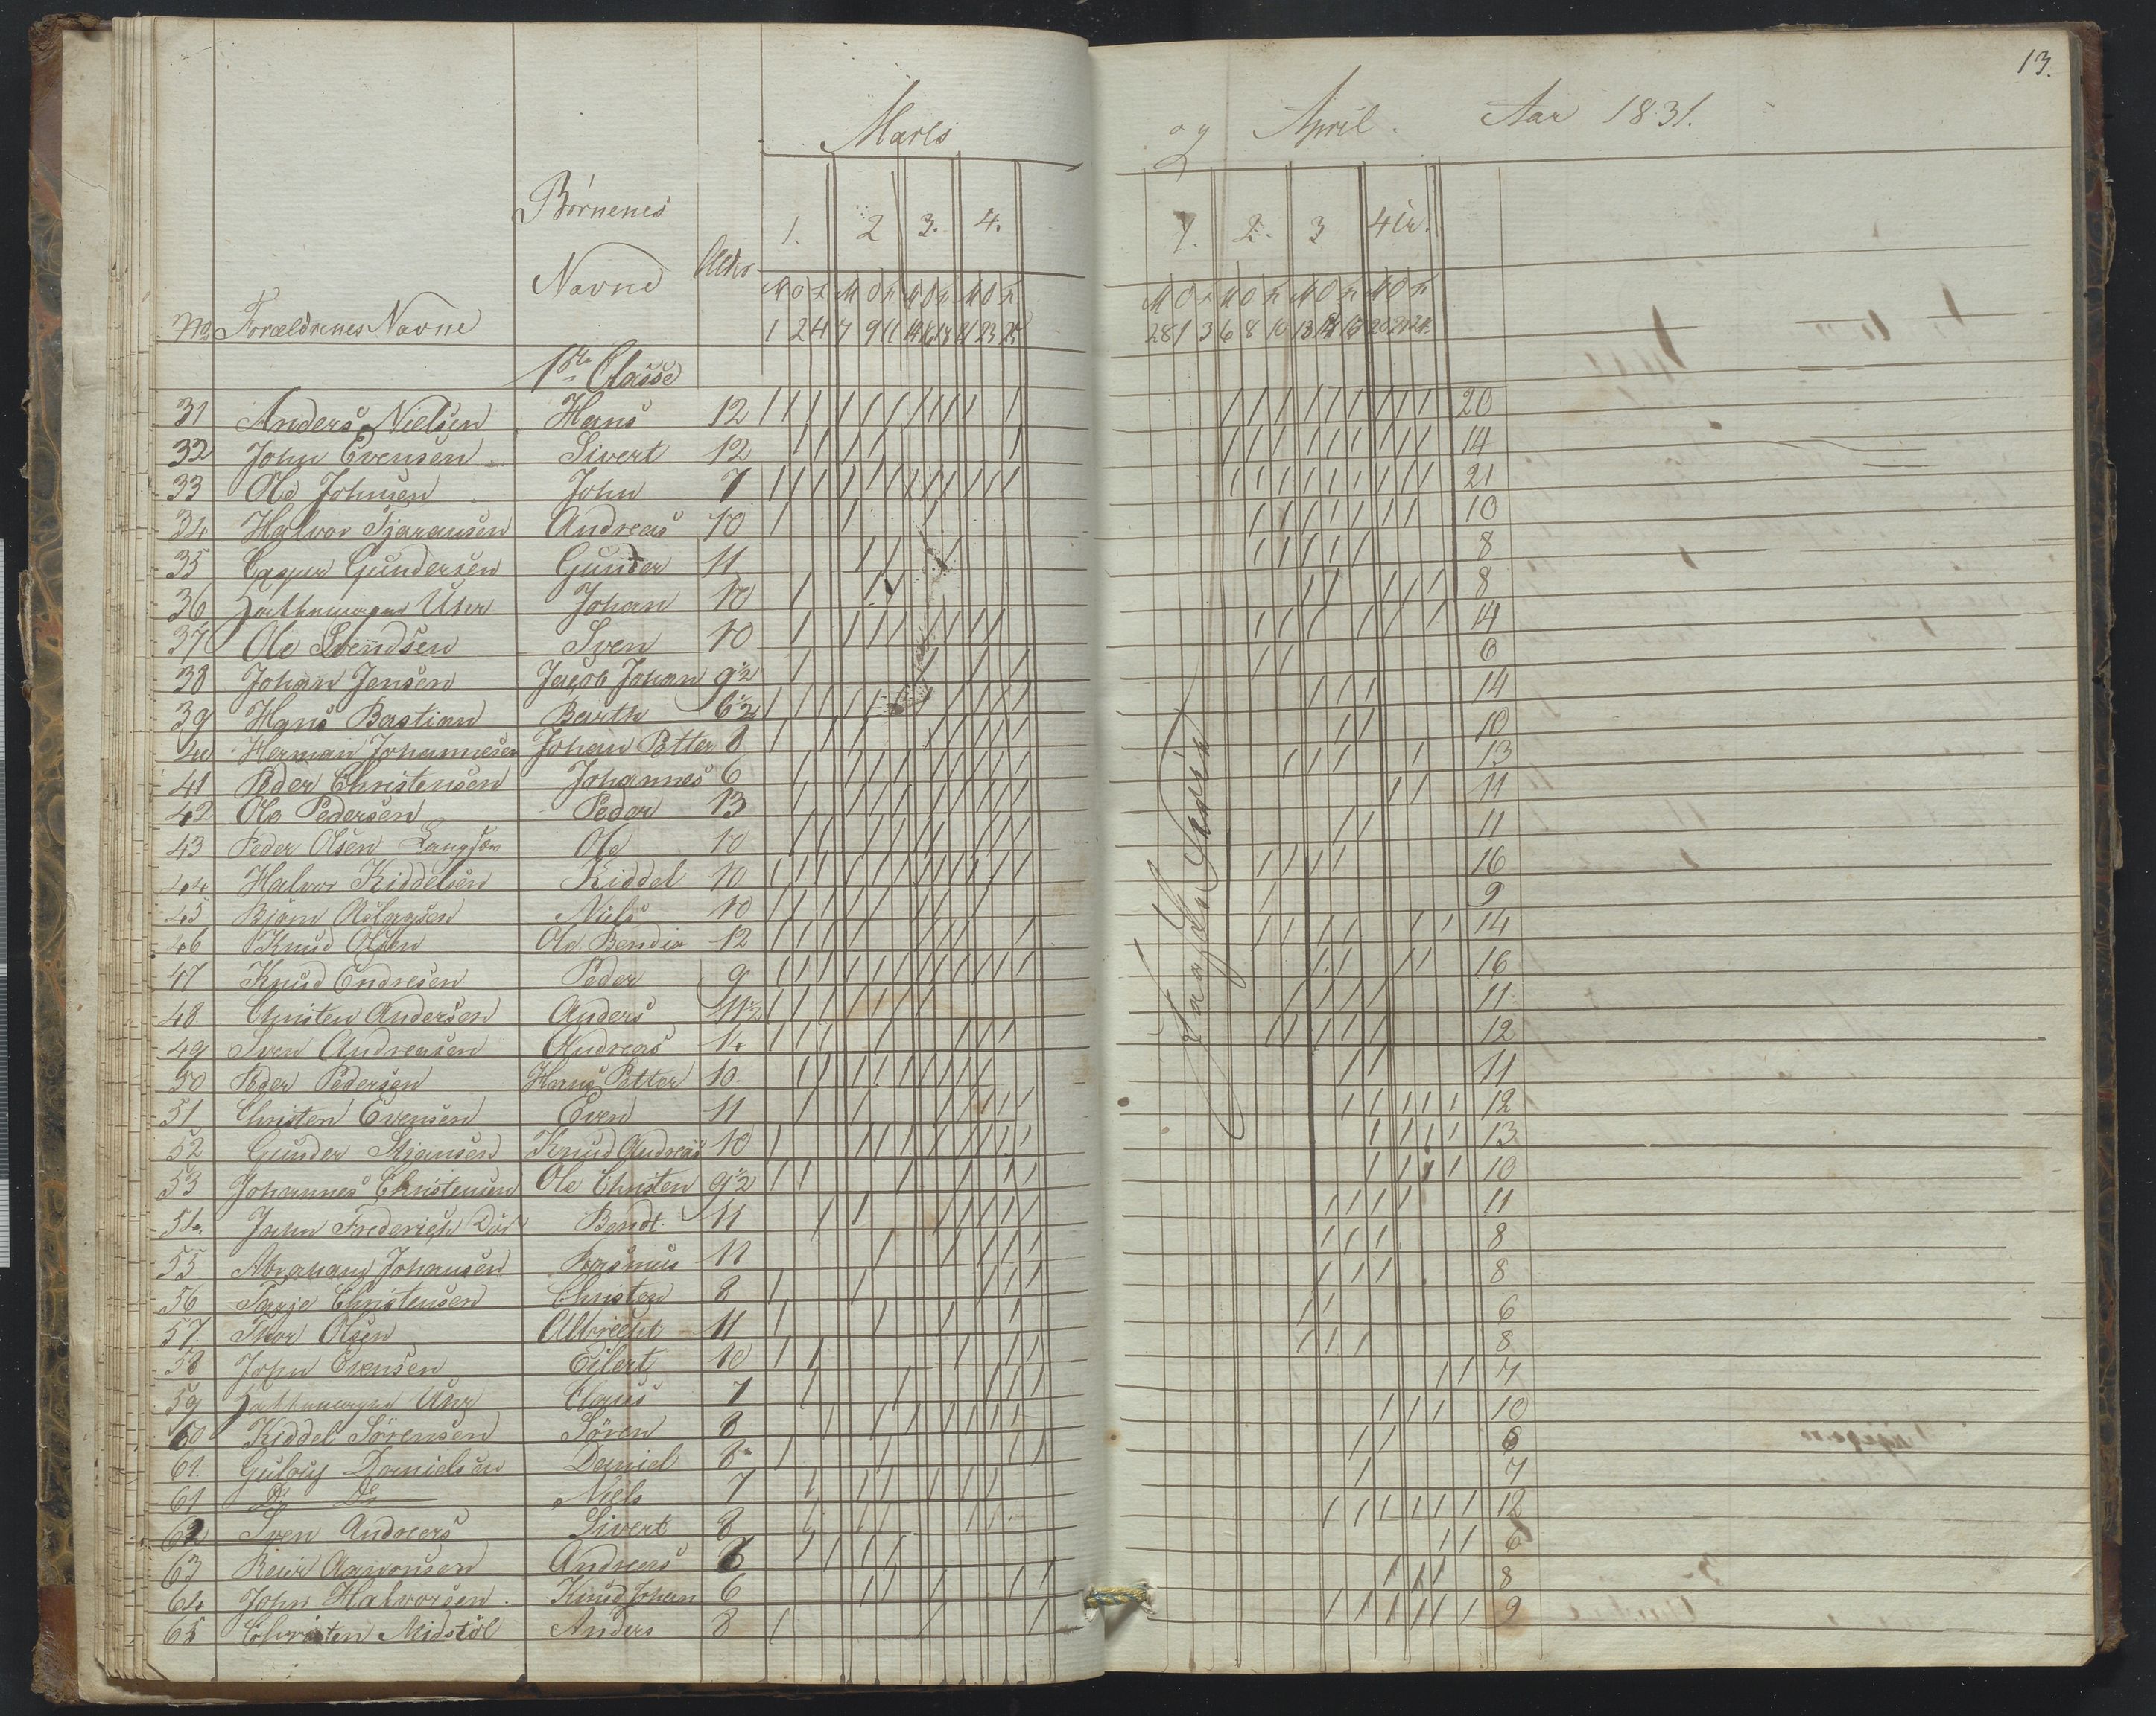 13.
Marts og April. Aar 1831.
Börnenes
1. 2 3. 4. 1. 2. 3 4de.
Navne Alder
M O L M O L M O L M O L M O L M O L M O L M O L
No Forældrenes Navne 1 2 4 7 9 11 14 16 18 21 23 25 28 1 3 6 8 10 13 15 20
1ste Classe
31 Anders Nielsen Hans 12 20
32 John Evensen Sivert 12 14
33 Ole Johnsen John 7 21
34 Halvor Tjøransen Andreas 10 10
35 Casper Gundersen Gunder 11 8
36 Uhr Johan 10 8
37 Ole Svendsen Sven 10 14
38 Johan Jensen Jacob Johan 9½ 6
39 Hans Bastian Barth 6½ 14
40 Herman Johannesen Johan Petter 8 10
41 Peder Christensen Johannes 6 13
42 Ole Pedersen Peder 13 11
43 Peder Olsen Ole 10 11
44 Halvor Kiddelsen Kiddel 10 16
45 Biörn Aslagsen Niels 10 9
46 Knud Olsen Ole Bendix 12 14
47 Knud Endresen Peder 9 16
48 Christen Andersen Anders 11½ 11
49 Sven Andreasen Andreas 14 12
50 Peder Pedersen Hans Petter 10. 11
51 Christen Evensen Even 11 12
52 Gunder Stiansen Knud Andreas 10 13
53 Johannes Christensen Ole Christen 9½ 10
54. John Frederich Bendt 11 11
55 Abraham Johansen Rasmus 11 8
56 Tarje Christensen Christen 8 8
57. Thor Olsen Albrecht 11 6
58 John Evensen Eilert 10 8
59 Uhr Claus 7 7
60 Kiddel Sörensen Sören 8 10
61. Gulov Danielsen Daniel 8 6
61 Do Do Niels 7 7
62 Sven Andreas Sivert 8 12
63 Reier Aanonsen Andreas 6 6
64 John Halvorsen Knud Johan 6 8
65 Christen Midstöl Anders 8 9